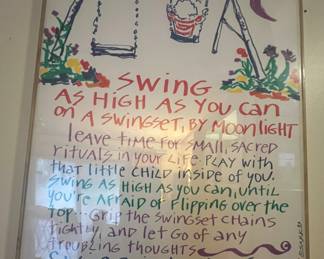 SWING
AS HIGH AS YOU CAN
ON A SWINGSET, BY MOONLIGHT
leave time FOR SMALL, SACRED
RITUALS in YOUR LIFE. PLAY WITH
THAT little CHILD inside OF YOU.
SWING AS HIGH AS YOU CAN, UNTIL
YOU'RE AFRAID OF FLIPPING OVER THE
TOP... GRIP THE SWINGSET CHAINS
TIGHTLY, AND LET GO OF ANY
TROUBLING THOUGHTS